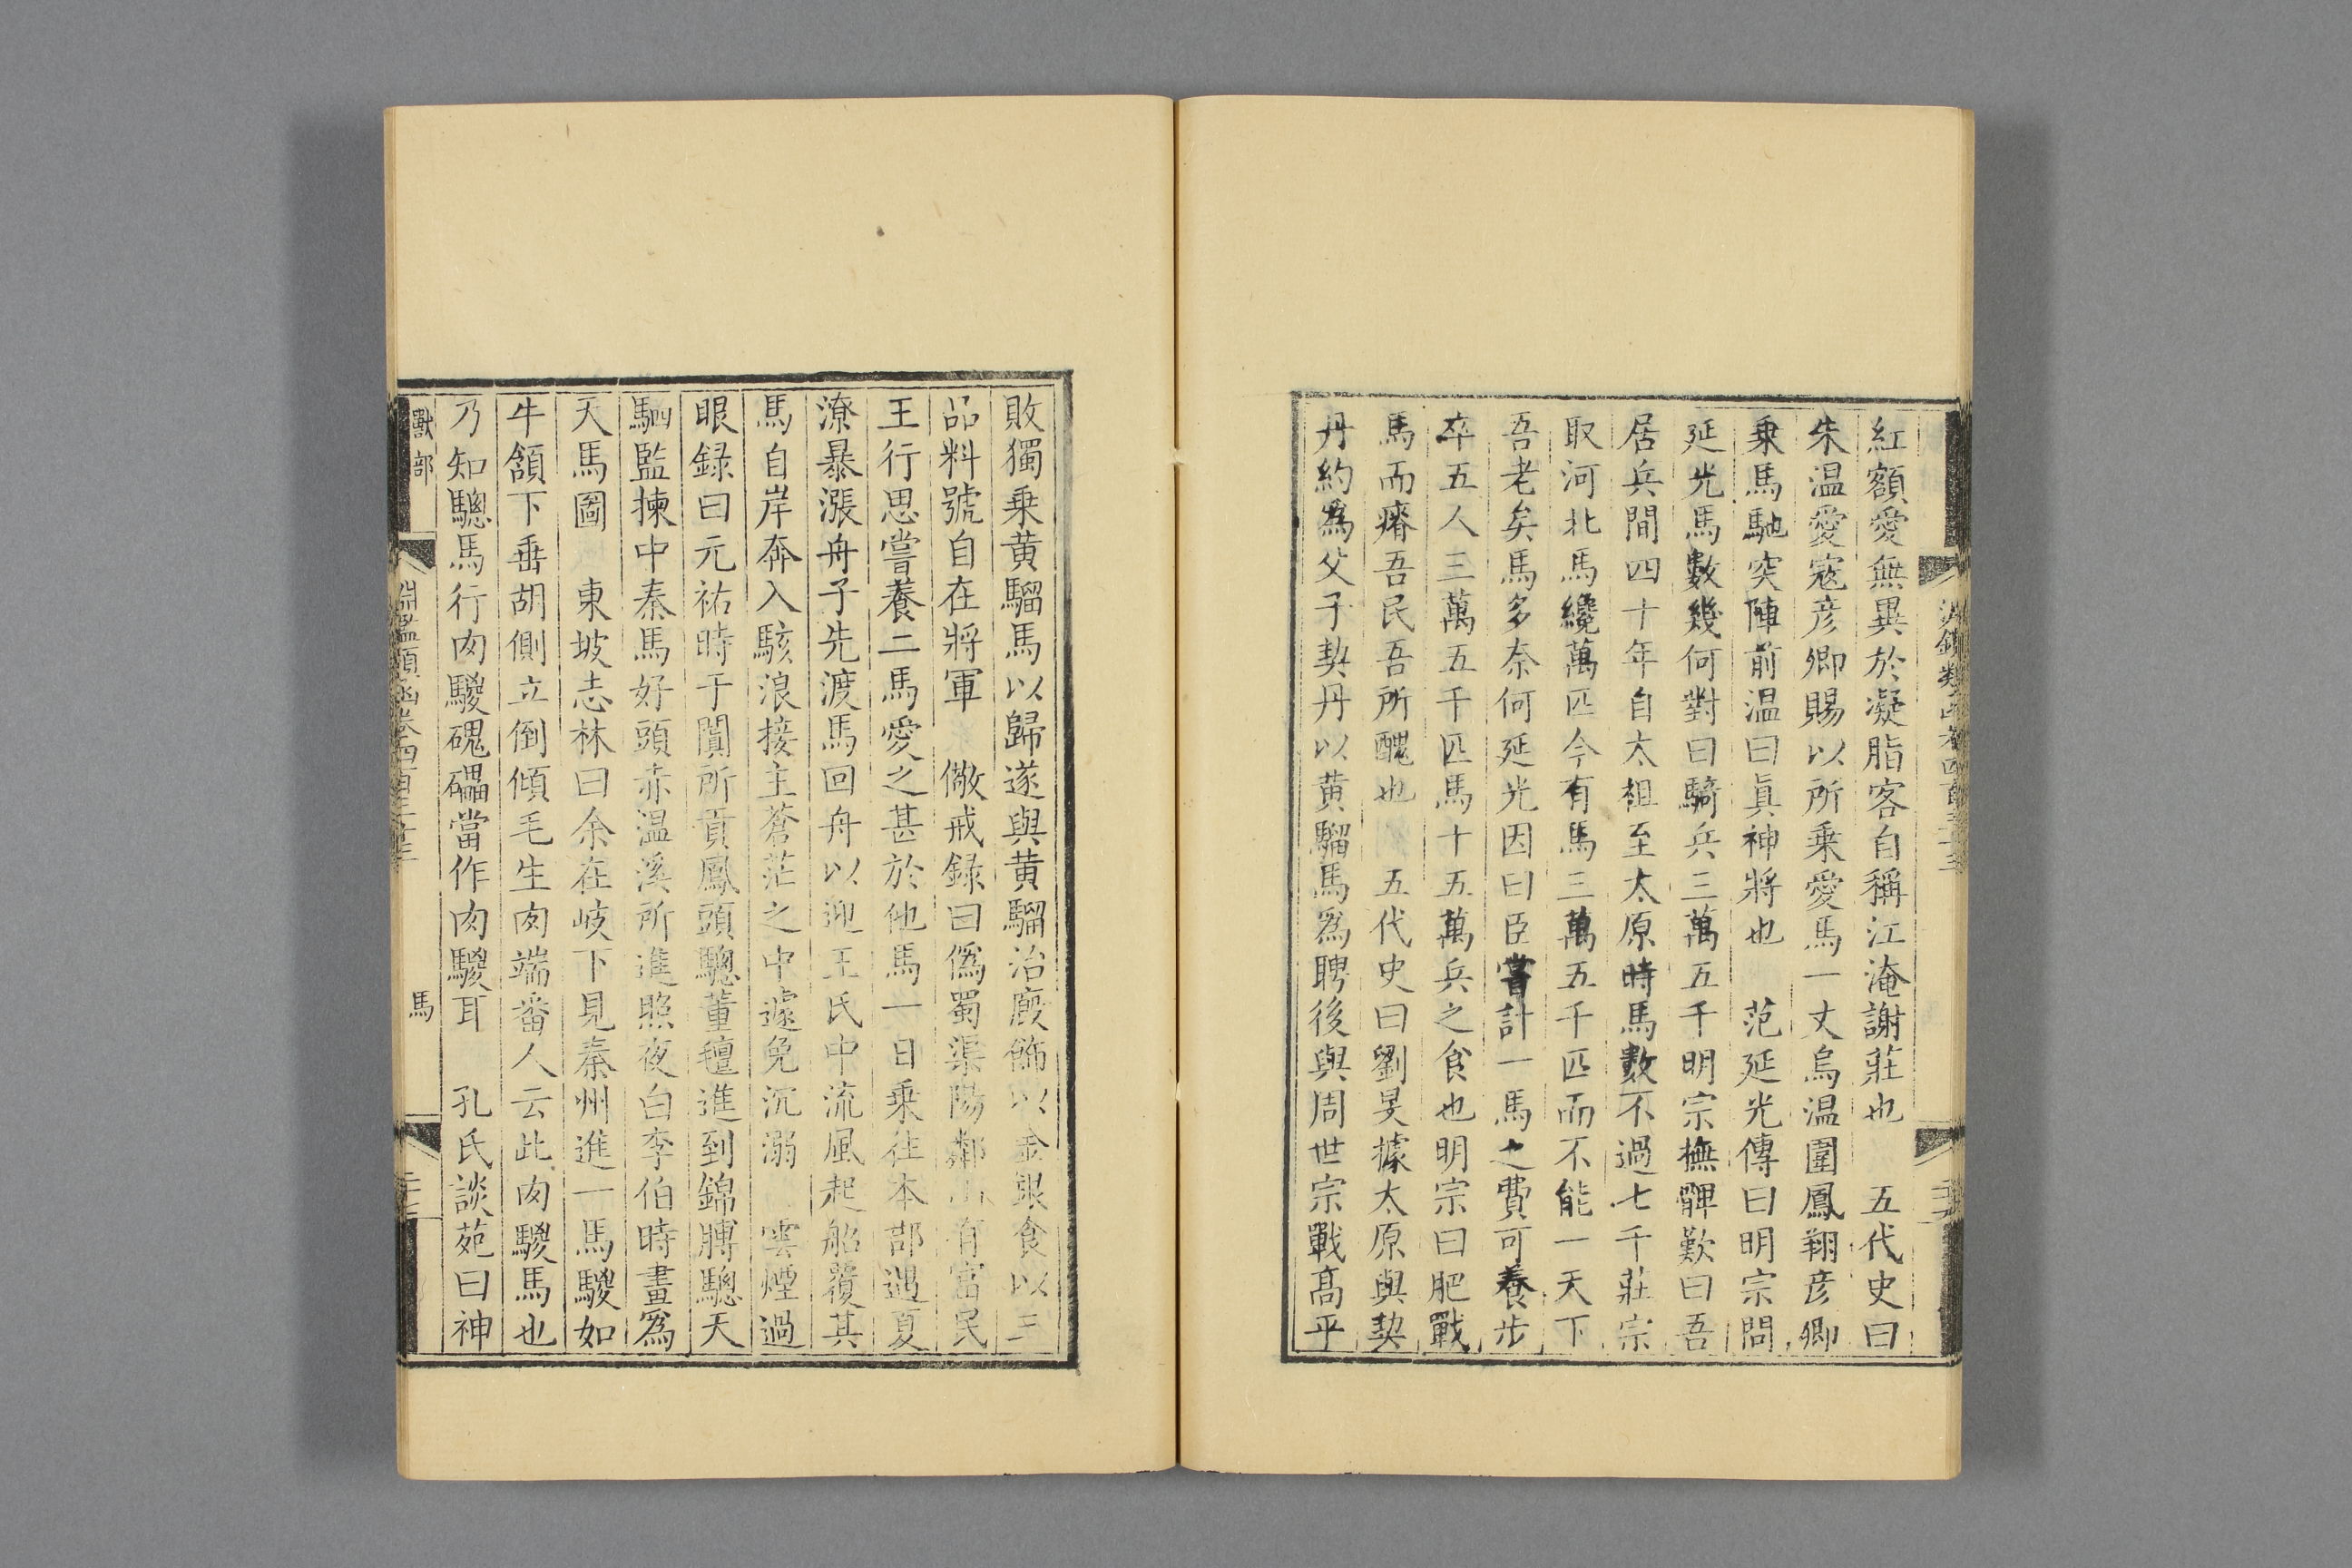 紅額愛無異於凝脂客自稱江淹謝莊也　五代史曰
朱温愛寇彦卿賜以所乗愛馬一丈烏温圍鳳翔彦卿
乗馬馳突陣前温曰眞神將也　范延光傳曰明宗問
延光馬數幾何對曰騎兵三萬五千明宗撫髀歎曰吾
居兵間四十年自太祖至太原時馬數不過七千莊宗
取河北馬纔萬匹今有馬三萬五千匹而不能一天下
吾老矣馬多奈何延光因曰臣嘗計一馬之費可養步
卒五人三萬五千匹馬十五萬兵之食也明宗曰肥戰
馬而瘠吾民吾所醜也　五代史曰劉旻據太原與契
丹約爲父子契丹以黄騮馬爲聘後與周世宗戰髙平
敗獨乗黄騮馬以歸遂與黄騮治廐飾以金銀食以三
品料號自在將軍　儆戒録曰僞蜀渠陽鄰山有富民
王行思嘗養二馬愛之甚於他馬一日乗往本部遇夏
潦暴漲舟子先渡馬回舟以迎王氏中流風起船覆其
馬自岸奔入駭浪接主蒼茫之中遽免沉溺　雲煙過
眼録曰元祐時于闐所貢鳳頭驄董氊進到錦膊驄天
駟監揀中秦馬好頭赤温溪所進照夜白李伯時畫爲
天馬圖　東坡志林曰余在岐下見秦州進一馬騣如
牛頷下垂胡側立倒傾毛生肉端番人云此肉騣馬也
乃知驄馬行肉騣磈礧當作肉騣耳　孔氏談苑曰神
獸部
淵鑑類函卷四百三十三
馬